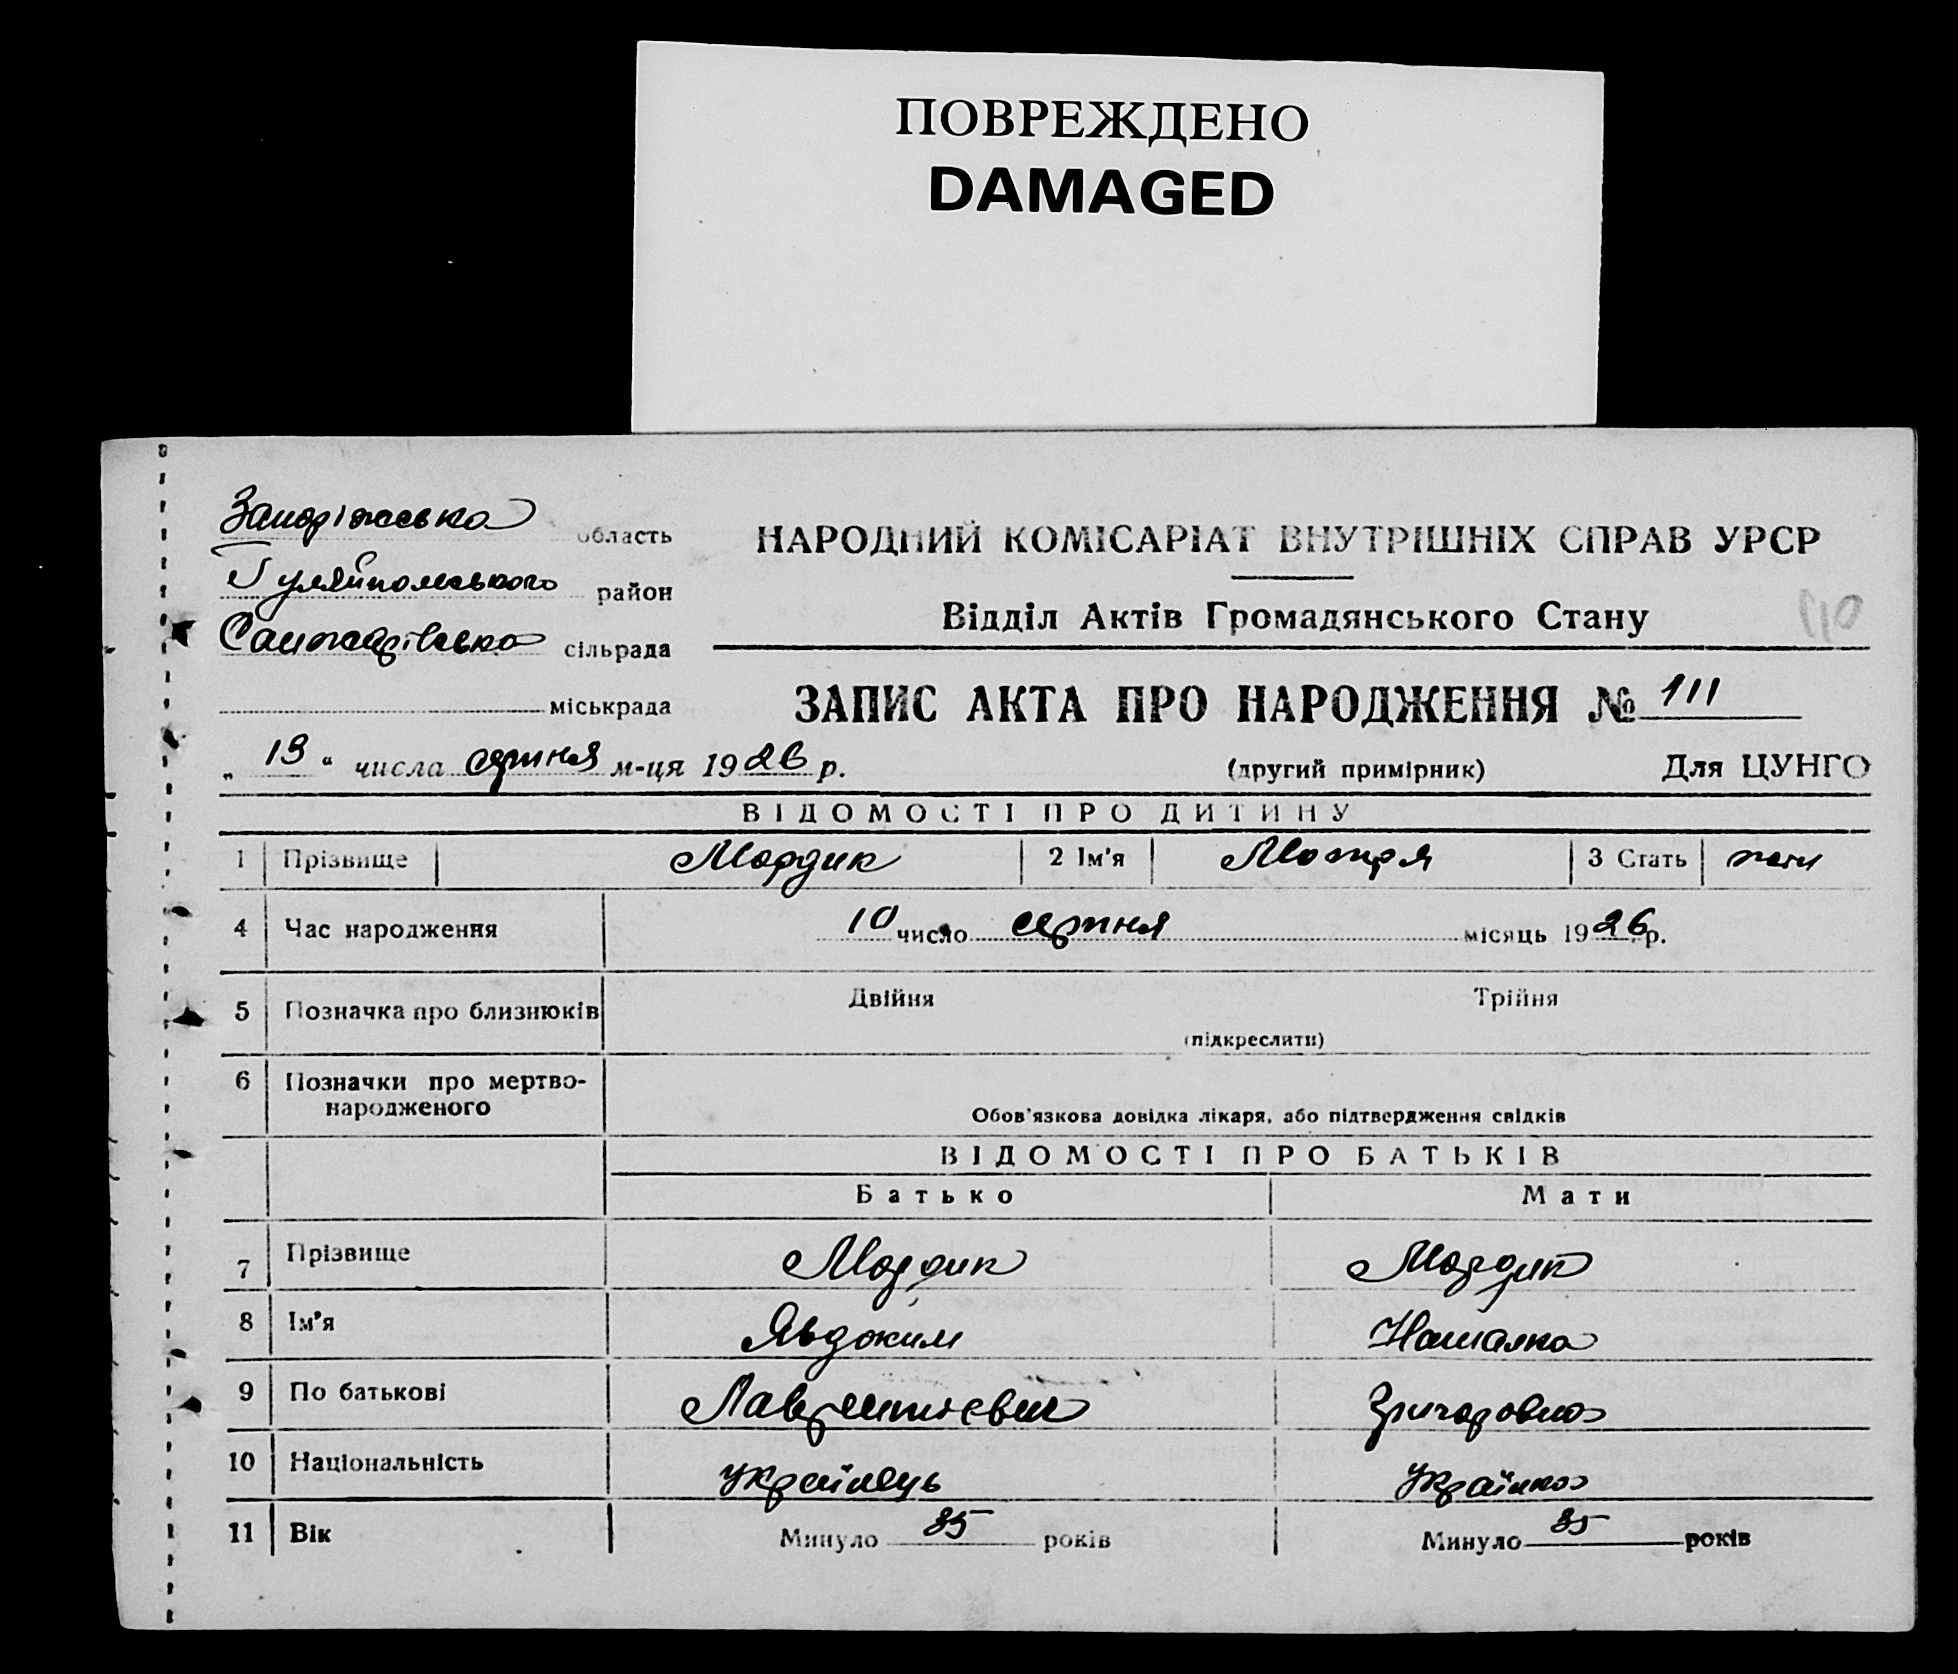 ПОВРЕЖДЕНО
DAMAGED
Запоріжська область
Гуляйпольського район
Санжарівська сільрада
міськрада
НАРОДНИЙ КОМІСАРІАТ ВНУТРІШНІХ СПРАВ УРСР
Відділ Актів Громадянського Стану
110
ЗАПИС АКТА ПРО НАРОДЖЕННЯ № 111
„ 13 “ числа серпня м-ця 1926 р. (другий примірник) Для ЦУНГО
ВІДОМОСТІ ПРО ДИТИНУ
1 Прізвище Мордик 2 Ім'я Мотря 3 Стать жіни
4 Час народження 10 число серпня місяць 1926 р.
5 Позначка про близнюків Двійня Трійня
(підкреслити)
6 Позначки про мертво-
народженого
Обов'язкова довідка лікаря, або підтвердження свідків
ВІДОМОСТІ ПРО БАТЬКІВ
Батько Мати
7 Прізвище Мордик Мордик
8 Ім'я Явдоким Наталка
9 По батькові Лаврентієвич Григоровна
10 Національність Українець Українка
11 Вік Минуло 35 років Минуло 35 років